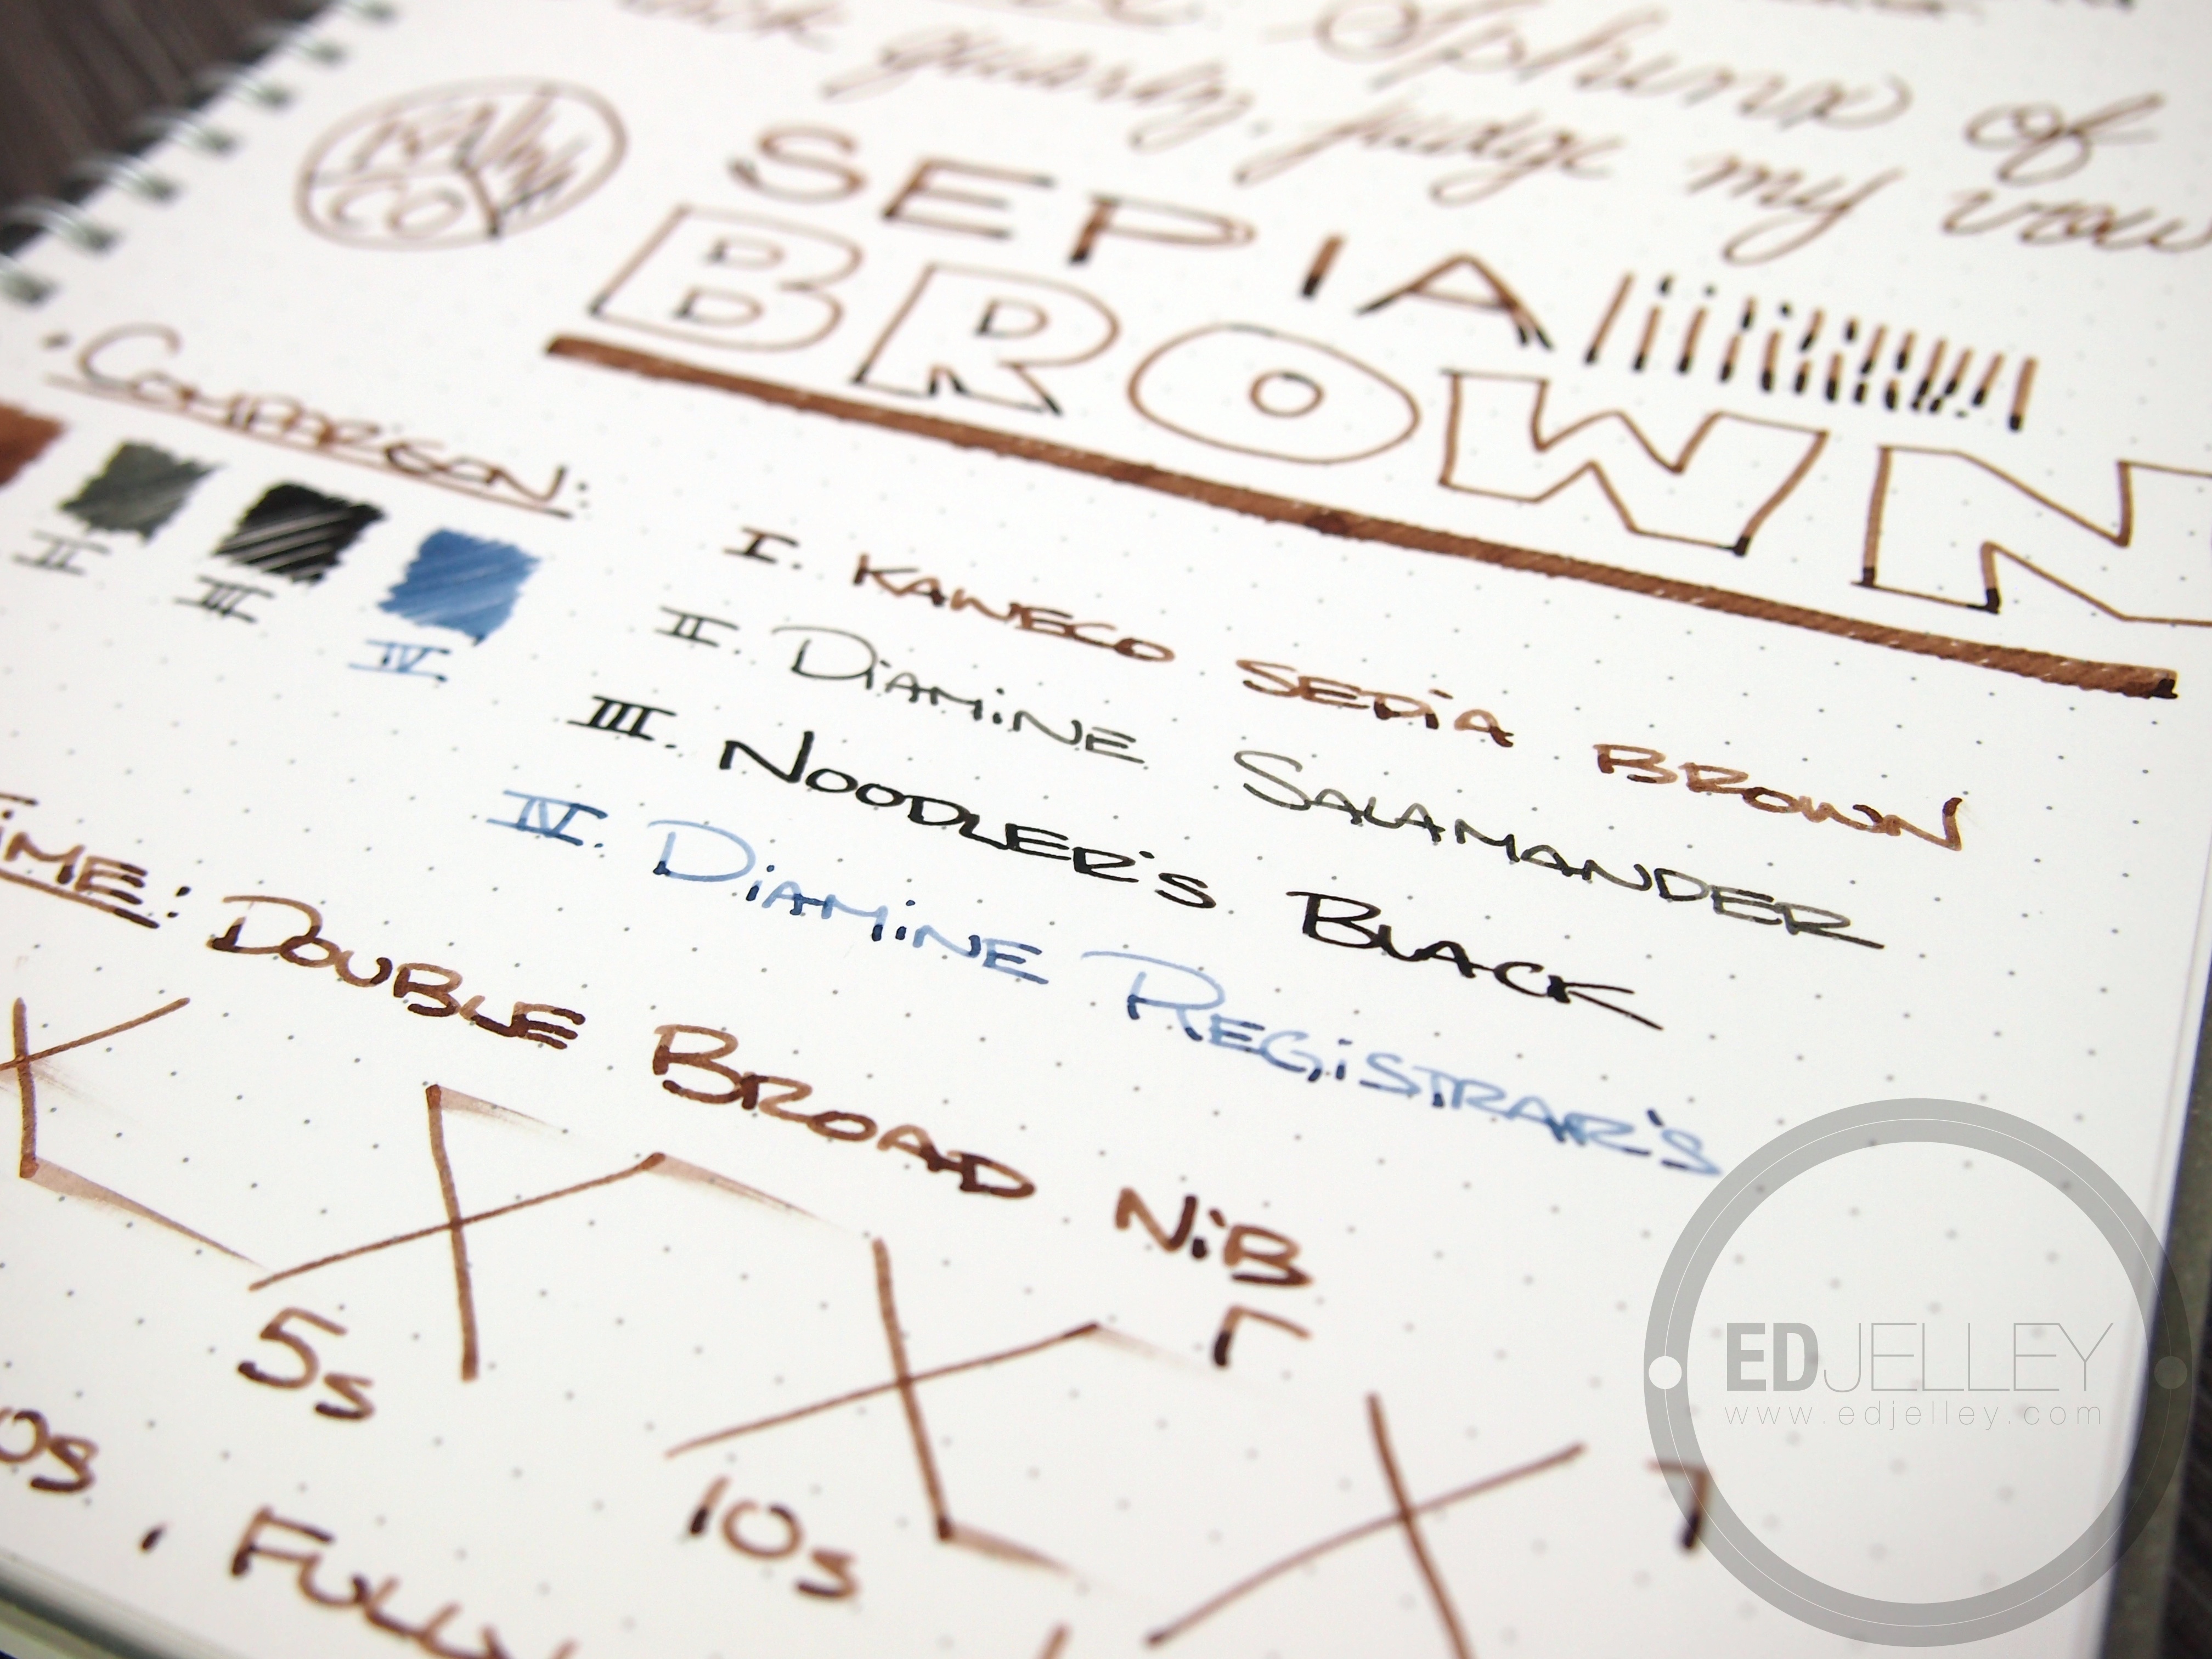 Sphinx of
quartz, judge my vow
KAWECO
SEPIA
BROWN
COMPARISON:
II III IV
I. KAWECO SEPIA BROWN
II. DIAMINE SALAMANDER
III. NOODLER'S BLACK
IV. DIAMINE REGISTRAR'S
TIME: DOUBLE BROAD NIB
5s
10s
0s , FULLY
EDJELLEY
www.edjelley.com